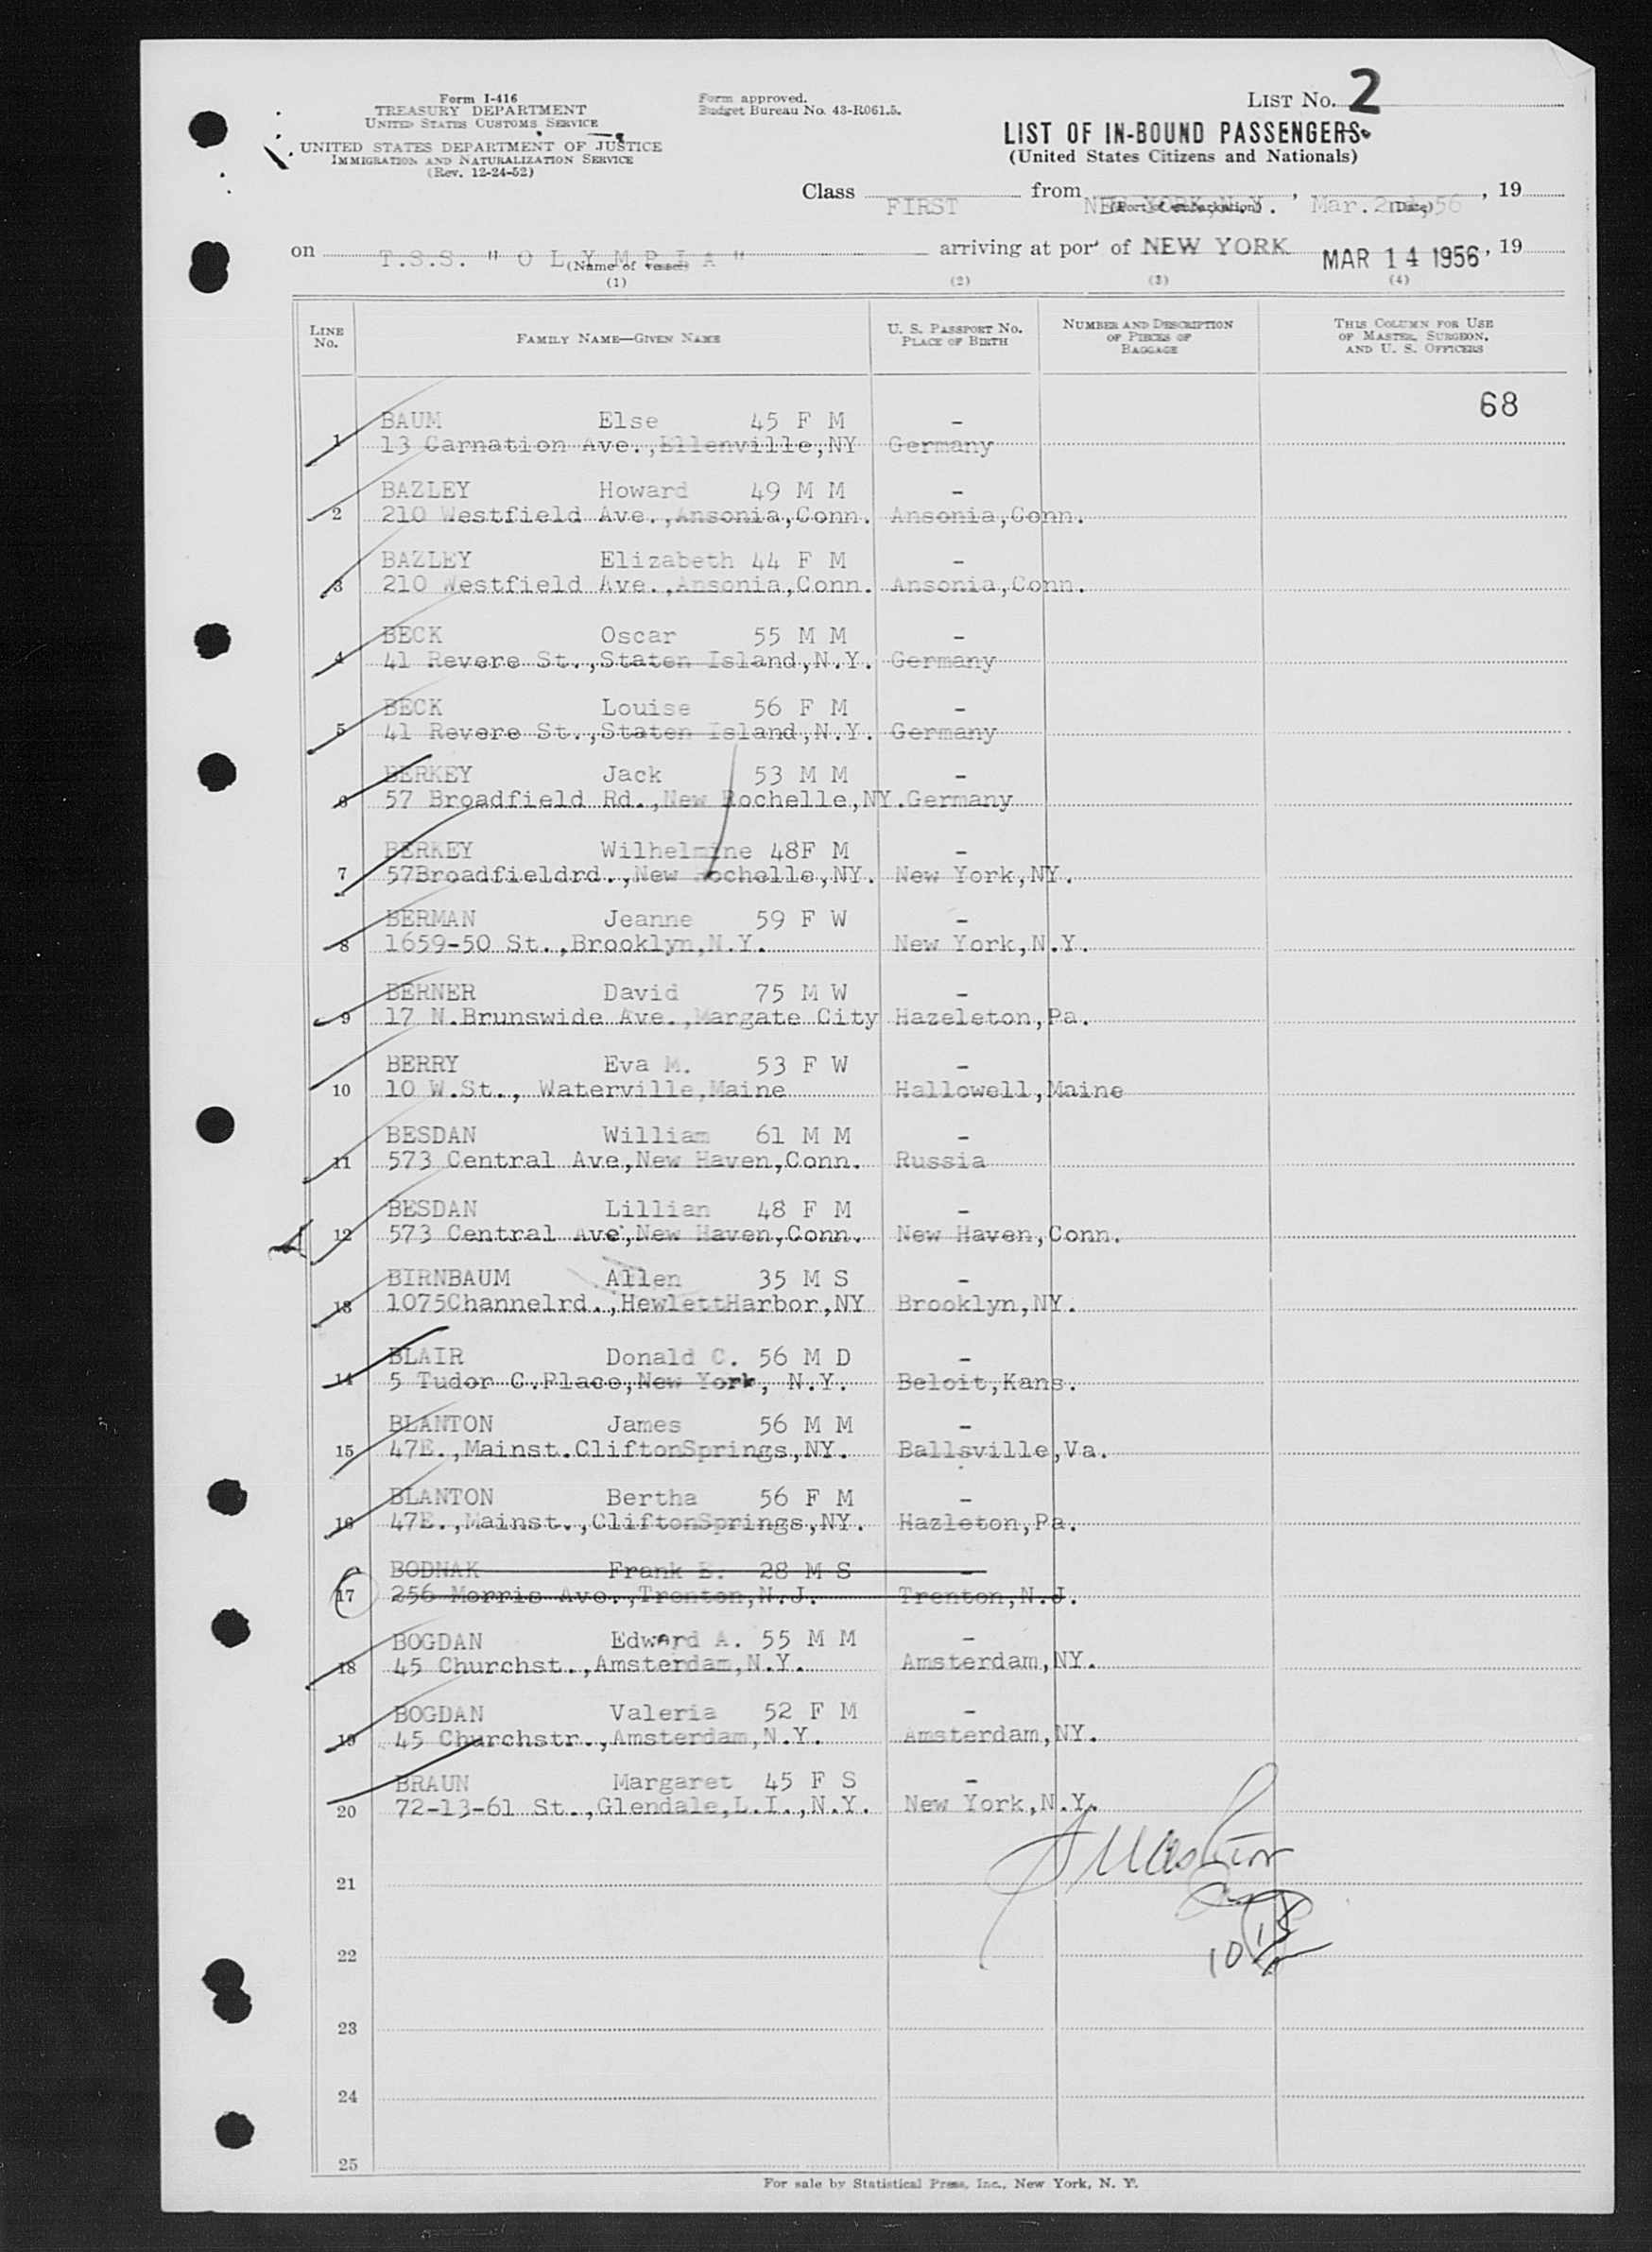 Form I-416
TREASURY DEPARTMENT
UNITED STATES CUSTOMS SERVICE
UNITED STATES DEPARTMENT OF JUSTICE
IMMIGRATION AND NATURALIZATION SERVICE
(Rev. 12-24-52)
Form approved.
Budget Bureau No. 43-R061.5.
LIST NO. 2
LIST OF IN-BOUND PASSENGERS
(United States Citizens and Nationals)
Class FIRST from NEW YORK, N.Y. , Mar. 2nd, 56 , 19
(Port of embarkation) (Date)
on T.S.S. " O L Y M P I A " arriving at port of NEW YORK MAR 14 1956, 19
(Name of vessel)
(1) (2) (3) (4)
LINE NO. FAMILY NAME—GIVEN NAME U. S. PASSPORT NO. PLACE OF BIRTH NUMBER AND DESCRIPTION OF PIECES OF BAGGAGE THIS COLUMN FOR USE OF MASTER, SURGEON, AND U. S. OFFICERS
68
BAUM Else 45 F M -
1 13 Carnation Ave.,Ellenville,NY Germany
BAZLEY Howard 49 M M -
2 210 Westfield Ave.,Ansonia,Conn. Ansonia,Conn.
BAZLEY Elizabeth 44 F M -
3 210 Westfield Ave.,Ansonia,Conn. Ansonia,Conn.
BECK Oscar 55 M M -
4 41 Revere St.,Staten Island,N.Y. Germany
BECK Louise 56 F M -
5 41 Revere St.,Staten Island,N.Y. Germany
BERKEY Jack 53 M M -
6 57 Broadfield Rd.,New Rochelle,NY.Germany
BERKEY Wilhelmine 48F M -
7 57Broadfieldrd.,New Rochelle,NY. New York,NY.
BERMAN Jeanne 59 F W -
8 1659-50 St.,Brooklyn,N.Y. New York,N.Y.
BERNER David 75 M W -
9 17 N.Brunswide Ave.,Margate City Hazeleton,Pa.
BERRY Eva M. 53 F W -
10 10 W.St., Waterville,Maine Hallowell,Maine
BESDAN William 61 M M -
11 573 Central Ave,New Haven,Conn. Russia
BESDAN Lillian 48 F M -
12 573 Central Ave,New Haven,Conn. New Haven,Conn.
BIRNBAUM Allen 35 M S -
13 1075Channelrd.,HewlettHarbor,NY Brooklyn,NY.
BLAIR Donald C. 56 M D -
14 5 Tudor C.Place,New York, N.Y. Beloit,Kans.
BLANTON James 56 M M -
15 47E.,Mainst.CliftonSprings,NY. Ballsville,Va.
BLANTON Bertha 56 F M -
16 47E.,Mainst.,CliftonSprings,NY. Hazleton,Pa.
BODNAK Frank B. 28 M S -
17 256 Morris Ave.,Trenton,N.J. Trenton,N.J.
BOGDAN Edward A. 55 M M -
18 45 Churchst.,Amsterdam,N.Y. Amsterdam,NY.
BOGDAN Valeria 52 F M -
19 45 Churchstr.,Amsterdam,N.Y. Amsterdam,NY.
BRAUN Margaret 45 F S -
20 72-13-61 St.,Glendale,L.I.,N.Y. New York,N.Y.
21
22
23
24
25
For sale by Statistical Press, Inc., New York, N. Y.